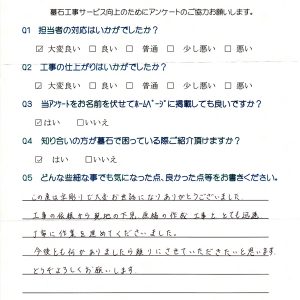 墓石工事サービス向上のためにアンケートのご協力お願いします。
Q1 担当者の対応はいかがでしたか？
☑ 大変良い □ 良い □ 普通 □ 少し悪い □ 悪い
Q2 工事の仕上がりはいかがでしたか？
☑ 大変良い □ 良い □ 普通 □ 少し悪い □ 悪い
Q3 当アンケートをお名前を伏せてホームページに掲載しても良いですか？
☑ はい □ いいえ
Q4 知り合いの方が墓石で困っている際ご紹介頂けますか？
☑ はい □ いいえ
Q5 どんな些細な事でも気になった点、良かった点等をお書きください。
この度は字彫りで大変お世話になりありがとうございました。
工事の依頼から現地の下見、原稿の作成 工事と とても迅速
丁寧に作業を進めてくださいました。
今後とも何かありましたら頼りにさせていただきたいと思います
どうぞよろしくお願いします。